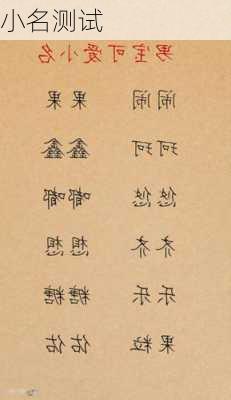 小名测试
男宝可爱小名
闹闹 果果
珂珂 鑫鑫
悠悠 嘟嘟
齐齐 想想
乐乐 糖糖
果粒 佑佑